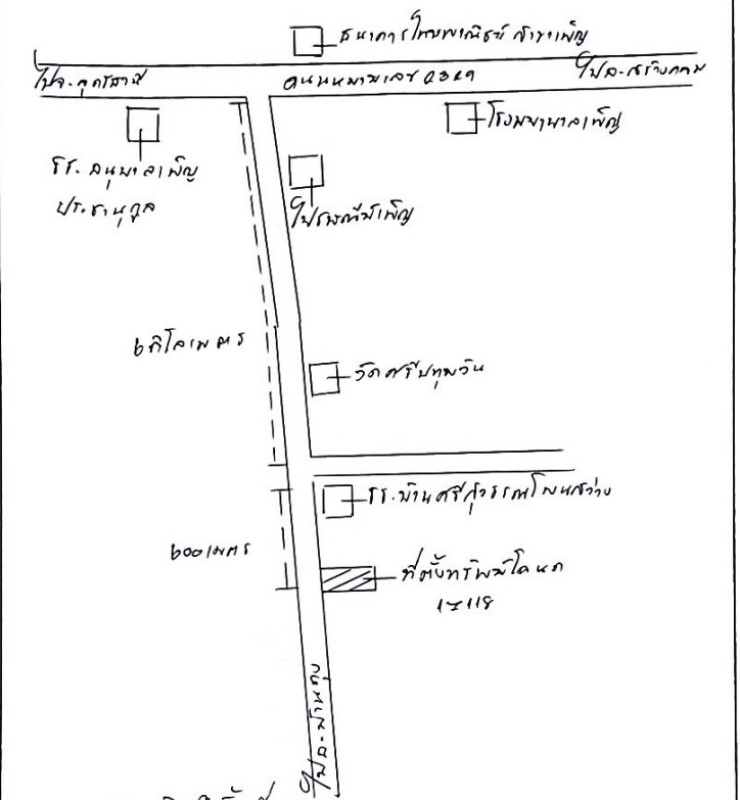 ธนาคารไทยพาณิชย์ สาขาเพ็ญ
ไปจ.อุดรธานี
ถนนหมายเลข
ไปอ.สร้างคอม
โรงพยาบาลเพ็ญ
รร. อนุบาลเพ็ญ
ประชานุกูล
ไปรษณีย์เพ็ญ
๖กิโลเมตร
วัดศรีปทุมวัน
รร.บ้านศรีสุวรรณโนนสว่าง
๖๐๐เมตร
ที่ตั้งทรัพย์โฉนด
ไปอ.บ้านดุง